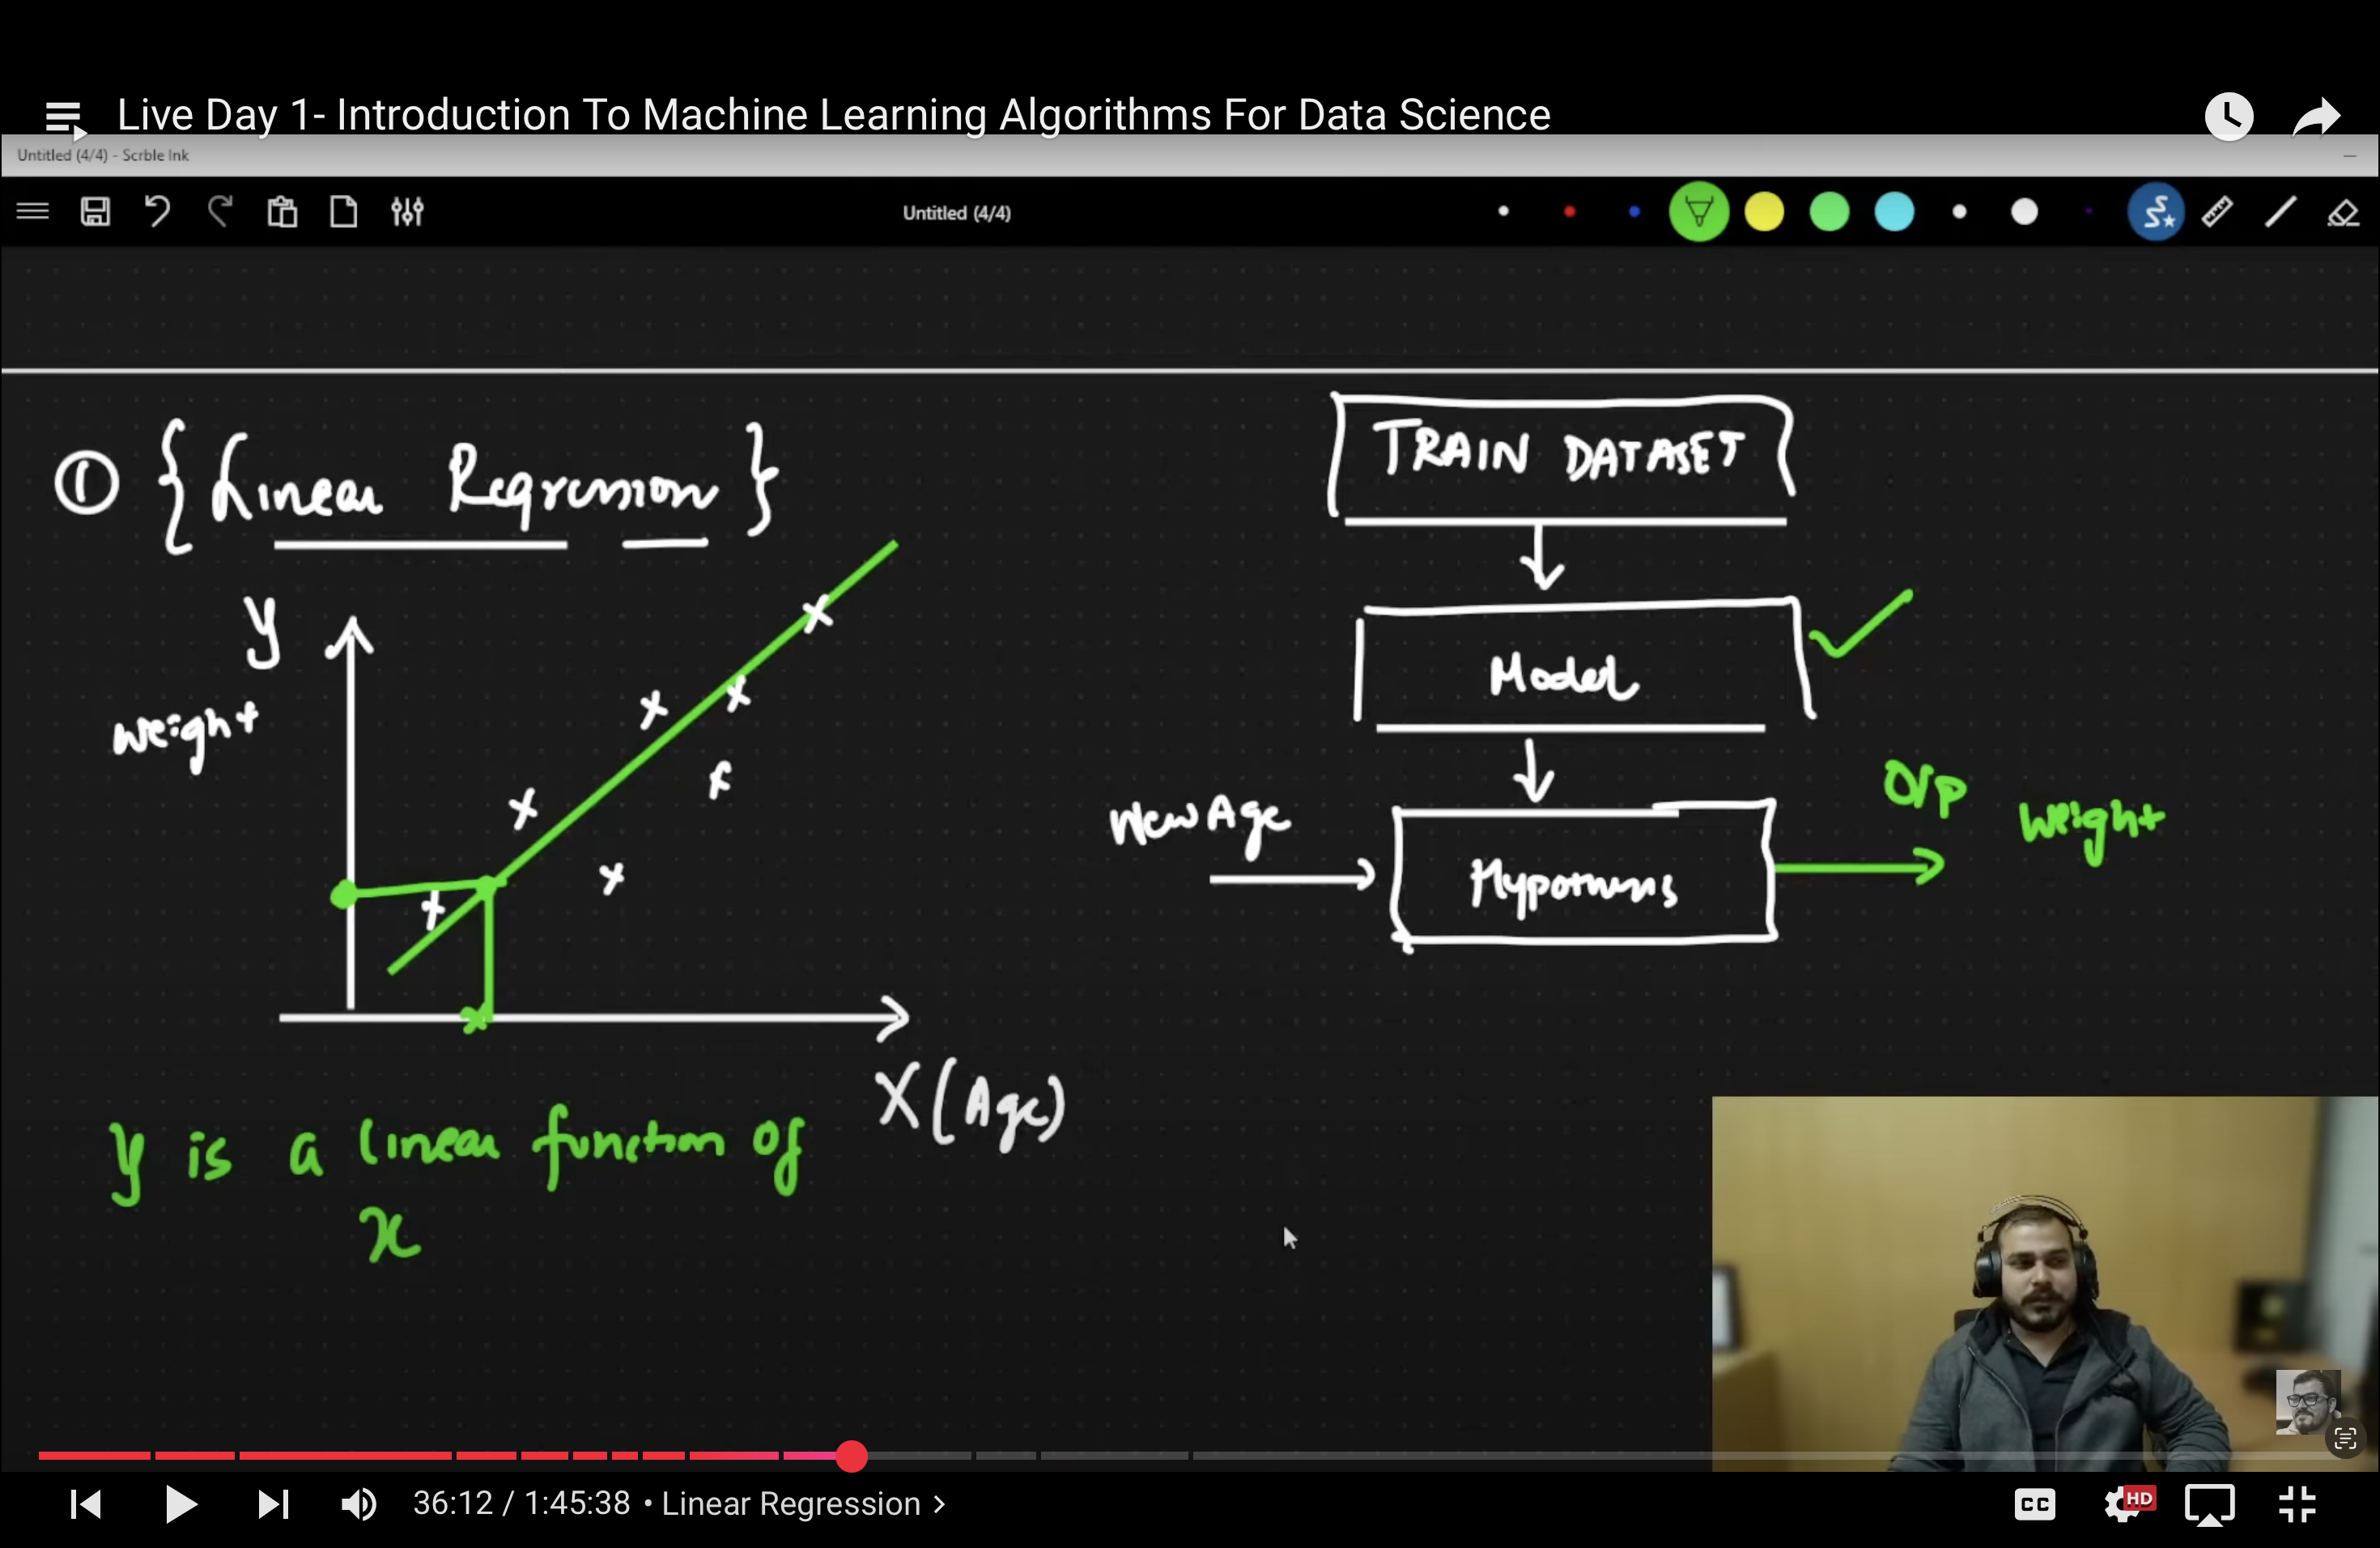 Live Day 1- Introduction To Machine Learning Algorithms For Data Science
Untitled (4/4) - Scrble Ink
Untitled (4/4)
① {Linear Regression}
y
weight
X (Age)
y is a linear function of
x
TRAIN DATASET
Model
New Age
Hypothesis
O/P
weight
36:12 / 1:45:38 • Linear Regression >
CC
HD